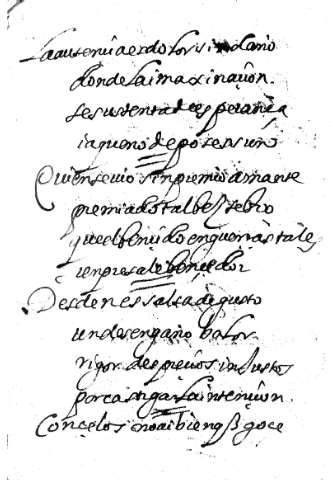 La ausençia es dolor sin daño
donde la imaxinaçion
se sustenta de esperança
ia que no de posesion
Quien se vio sin premio amante
premiado tal bez se bio
que el bençido en guerras tales
siempre sale bençedor
Desden es salsa de gusto
un desengaño balor
rigor despreçios injustos
por castigar la intençion
Con çelos no ai bien q se goce